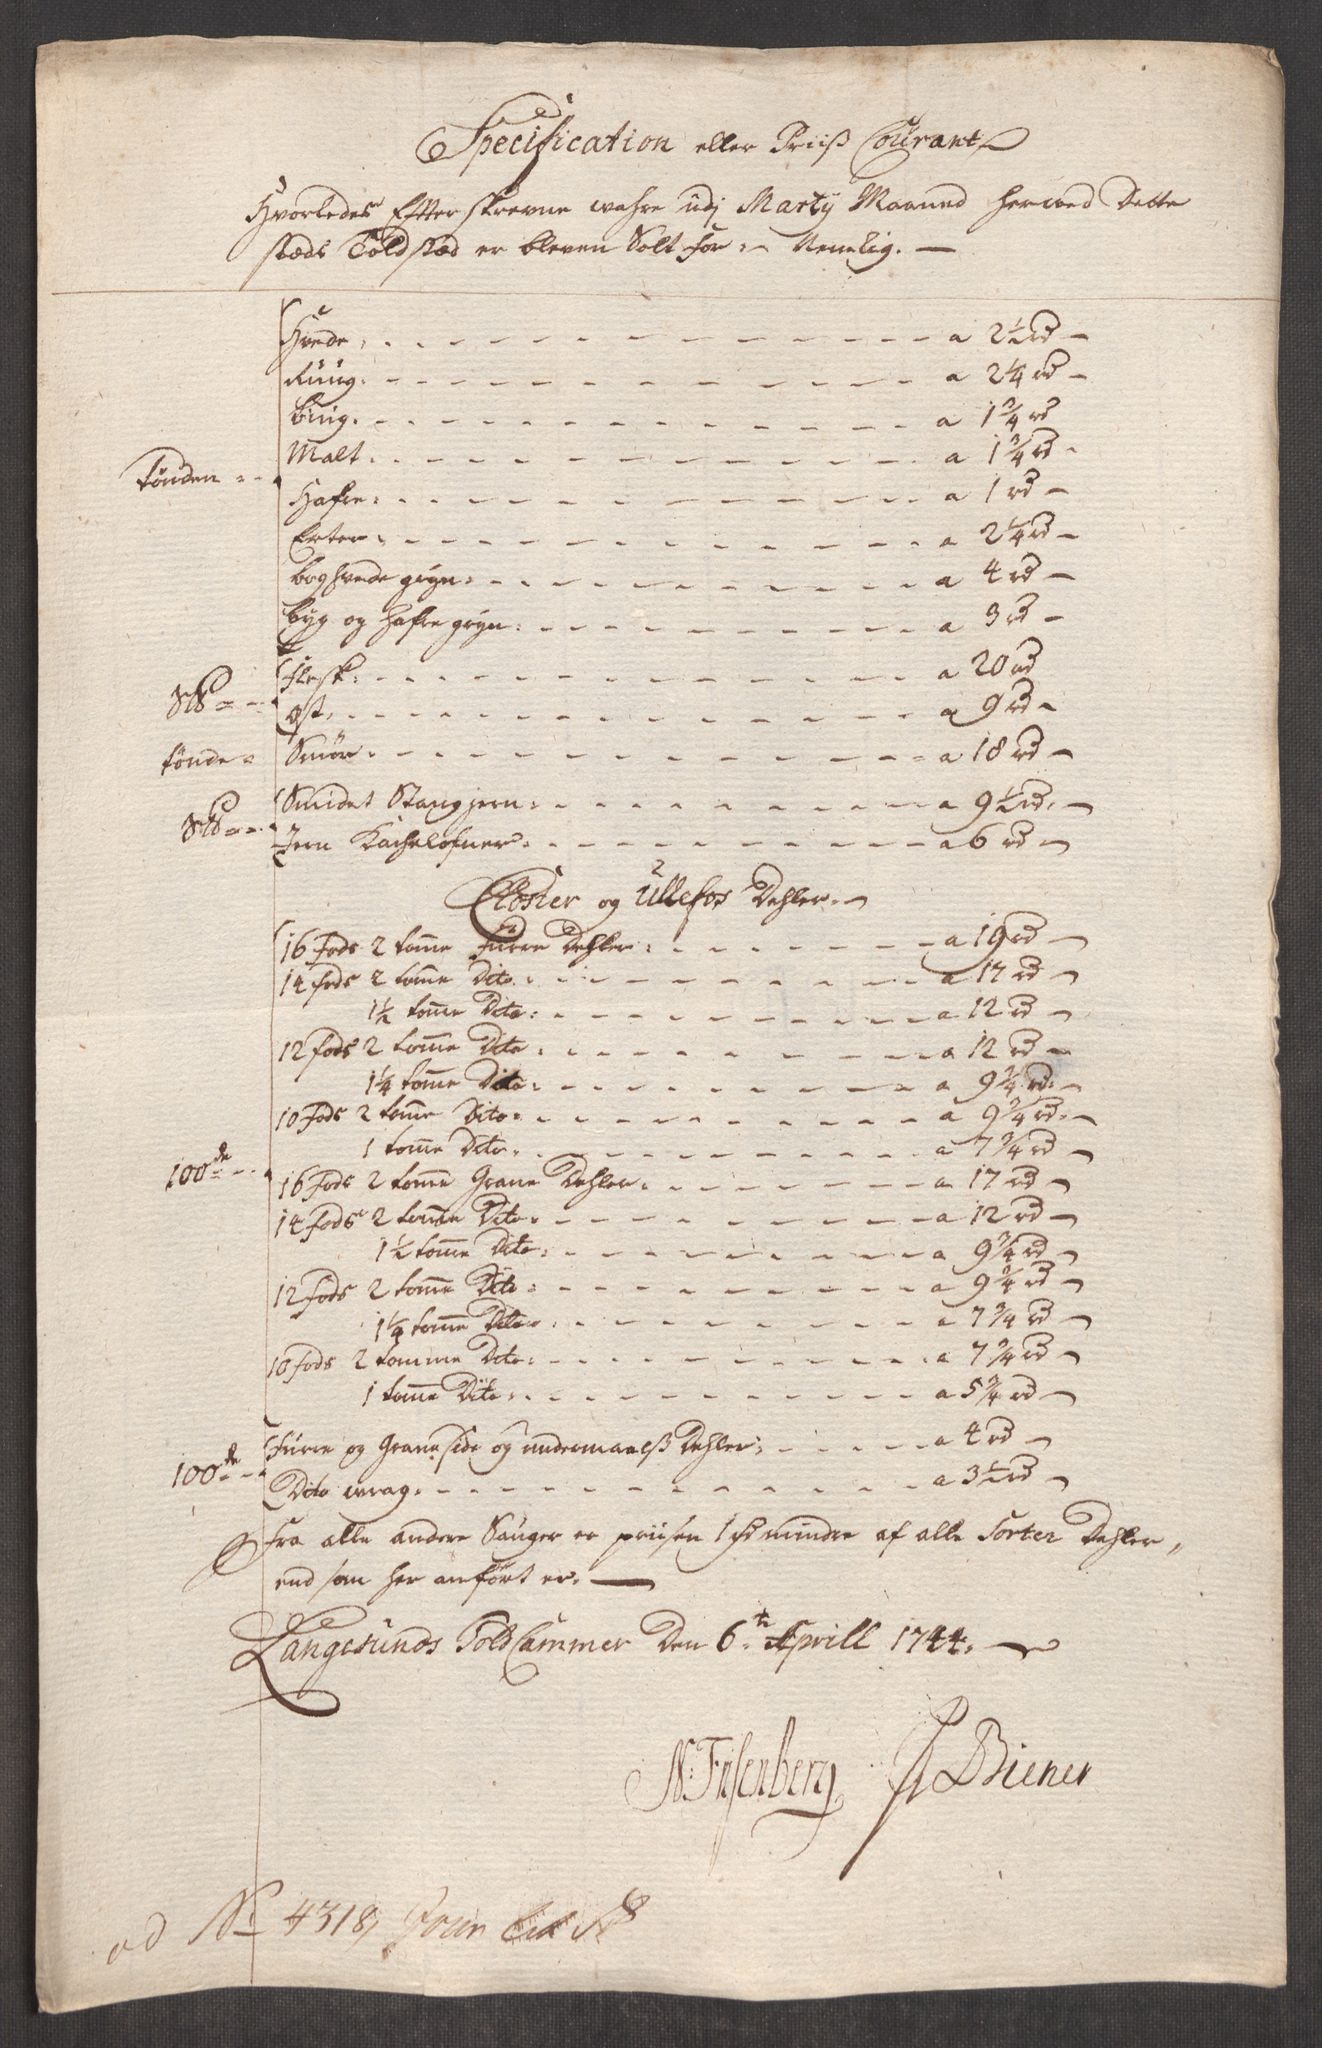 Specification eller Priiß Courant
Hvorledes Effterskrevne wahre udj Marty Maaned herwed Dette
stæds Toldstæd er bleven Solt for :~ Nemlig. —
Hvede a 2½ rd
Rüüg a 2¼ rd
biüg a 1¾ rd
Malt a 1¾ rd
Tönden
Hafre a 1 rd
Erter a 2¼ rd
boghvede gryn a 4 rd
byg og hafre gryn a 3 rd
Flesk a 20 rd
S℔
Ost a 9 rd
tönde Smör a 18 rd
Smidet Stangjern a 9½ rd
S℔
Jern Kachelofner a 6 rd
Closter og Ullefos Dehler
16 Fods 2 tom̅e Fürre Dehler a 19 rd
14 fods 2 tom̅e Dito a 17 rd
1½ tom̅e Dito a 12 rd
12 fods 2 tom̅e Dito a 12 rd
1¼ tom̅e Dito a 9¾ rd
10 Fods 2 tom̅e Dito a 9¾ rd
1 tom̅e Dito a 7¾ rd
100de 16 Fods 2 tom̅e Grane Dehler a 17 rd
14 fods 2 tom̅e Dito a 12 rd
1½ tom̅e Dito a 9¾ rd
12 Fods 2 tom̅e Dito a 9¾ rd
1¼ tom̅e Dito a 7¾ rd
10 Fods 2 tomme Dito a 7¾ rd
1 tom̅e Dito a 5¾ rd
Fürre og Grane side og undermaalß Dehler a 4 rd
100de
Dito wrag a 3½ rd
Fra alle andere Sauger er priisen 1 rd mindre af alle Sorter Dehler,
end som her anfört er. —
Langesunds Told Cammer Den 6te Aprill 1744.
N: Fusenberg Biener
ad No 4318